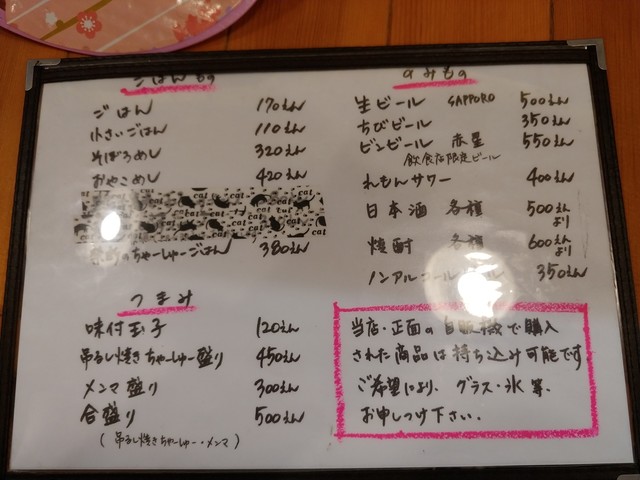 ごはんもの
ごはん 170えん
小さいごはん 110えん
そぼろめし 320えん
おやこめし 420えん
cat cat cat cat
のちゃーしゅーごはん 380えん
つまみ
味付玉子 120えん
吊るし焼きちゃーしゅー盛り 450えん
メンマ盛り 300えん
合盛り 500えん
(吊るし焼きちゃーしゅー・メンマ)
のみもの
生ビール SAPPORO 500えん
ちびビール 350えん
ビンビール 赤星 550えん
飲食店限定ビール
れもんサワー 400えん
日本酒 各種 500えんより
焼酎 各種 600えんより
ノンアルコールビール 350えん
当店・正面の自販機で購入
された商品は持ち込み可能です
ご希望により、グラス・氷等、
お申しつけ下さい。